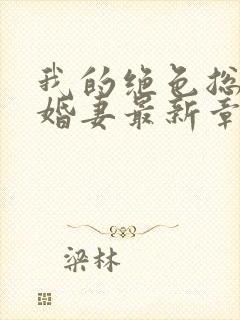 我的绝色总
婚妻最新章
梁林